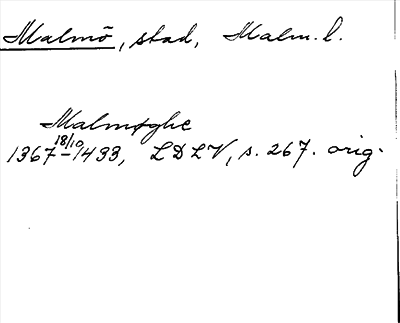 Malmö, stad, Malm. l.
Malmøghe
18/10
1367-1433, LDLV, s. 267. orig.